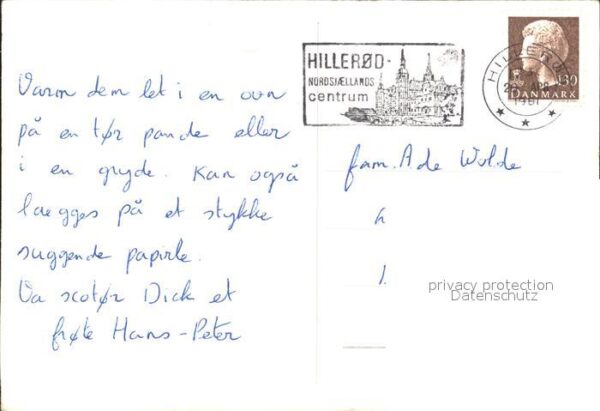 HILLERØD-
NORDSJÆLLANDS
centrum
HILLERØD
1981
130
DANMARK
Varm dem let i en ovn
på en tør pande eller
i en gryde. Kan også
lægges på et stykke
suggende papirle.
Va scotør Dick et
frøte Hans-Peter
fam. A de Wolde
privacy protection
Datenschutz